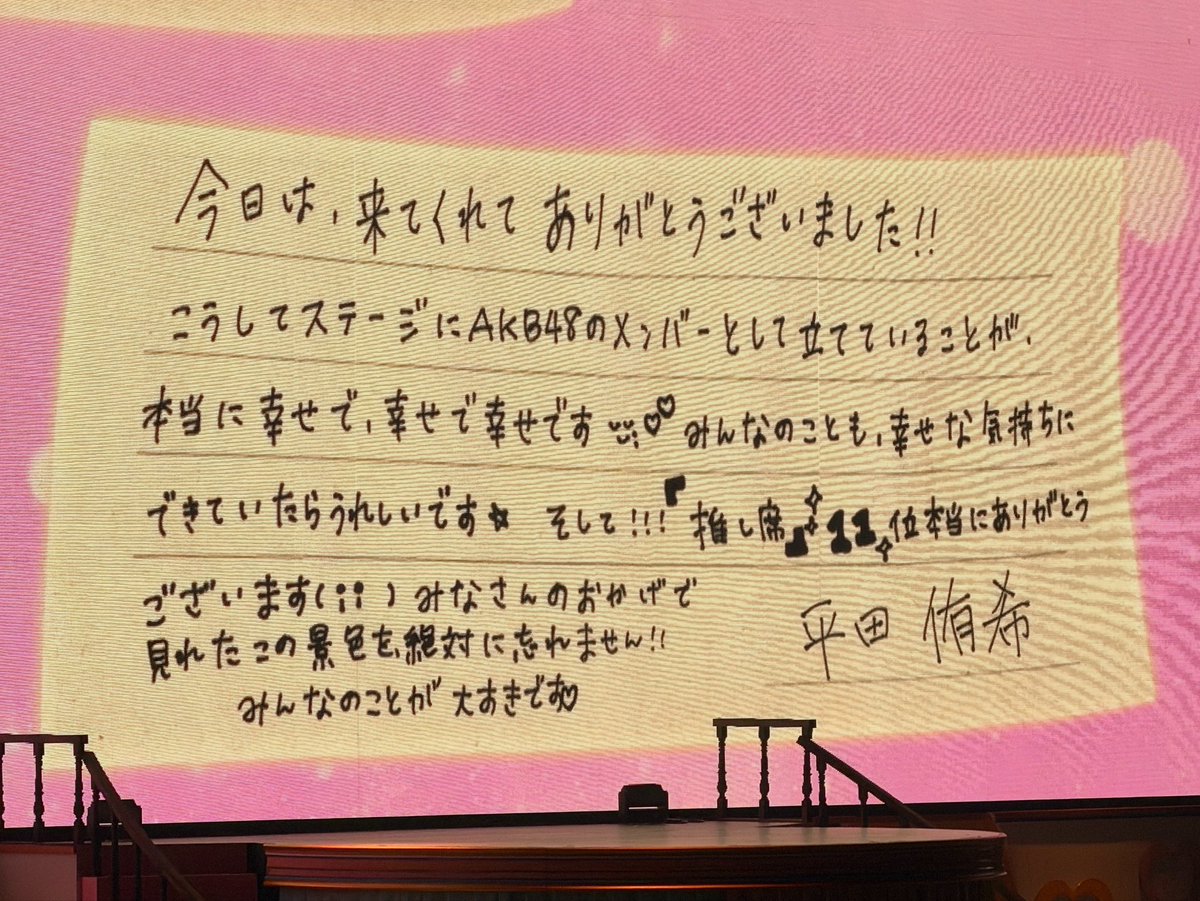 今日は、来てくれてありがとうございました!!
こうしてステージにAKB48のメンバーとして立てていることが、
本当に幸せで、幸せで幸せです♡♡ みんなのことも、幸せな気持ちに
できていたらうれしいです★ そして!!!『推し席』11位本当にありがとう
ございます(;;)みなさんのおかげで
見れたこの景色を、絶対に忘れません!!
みんなのことが大すきです♡
平田侑希